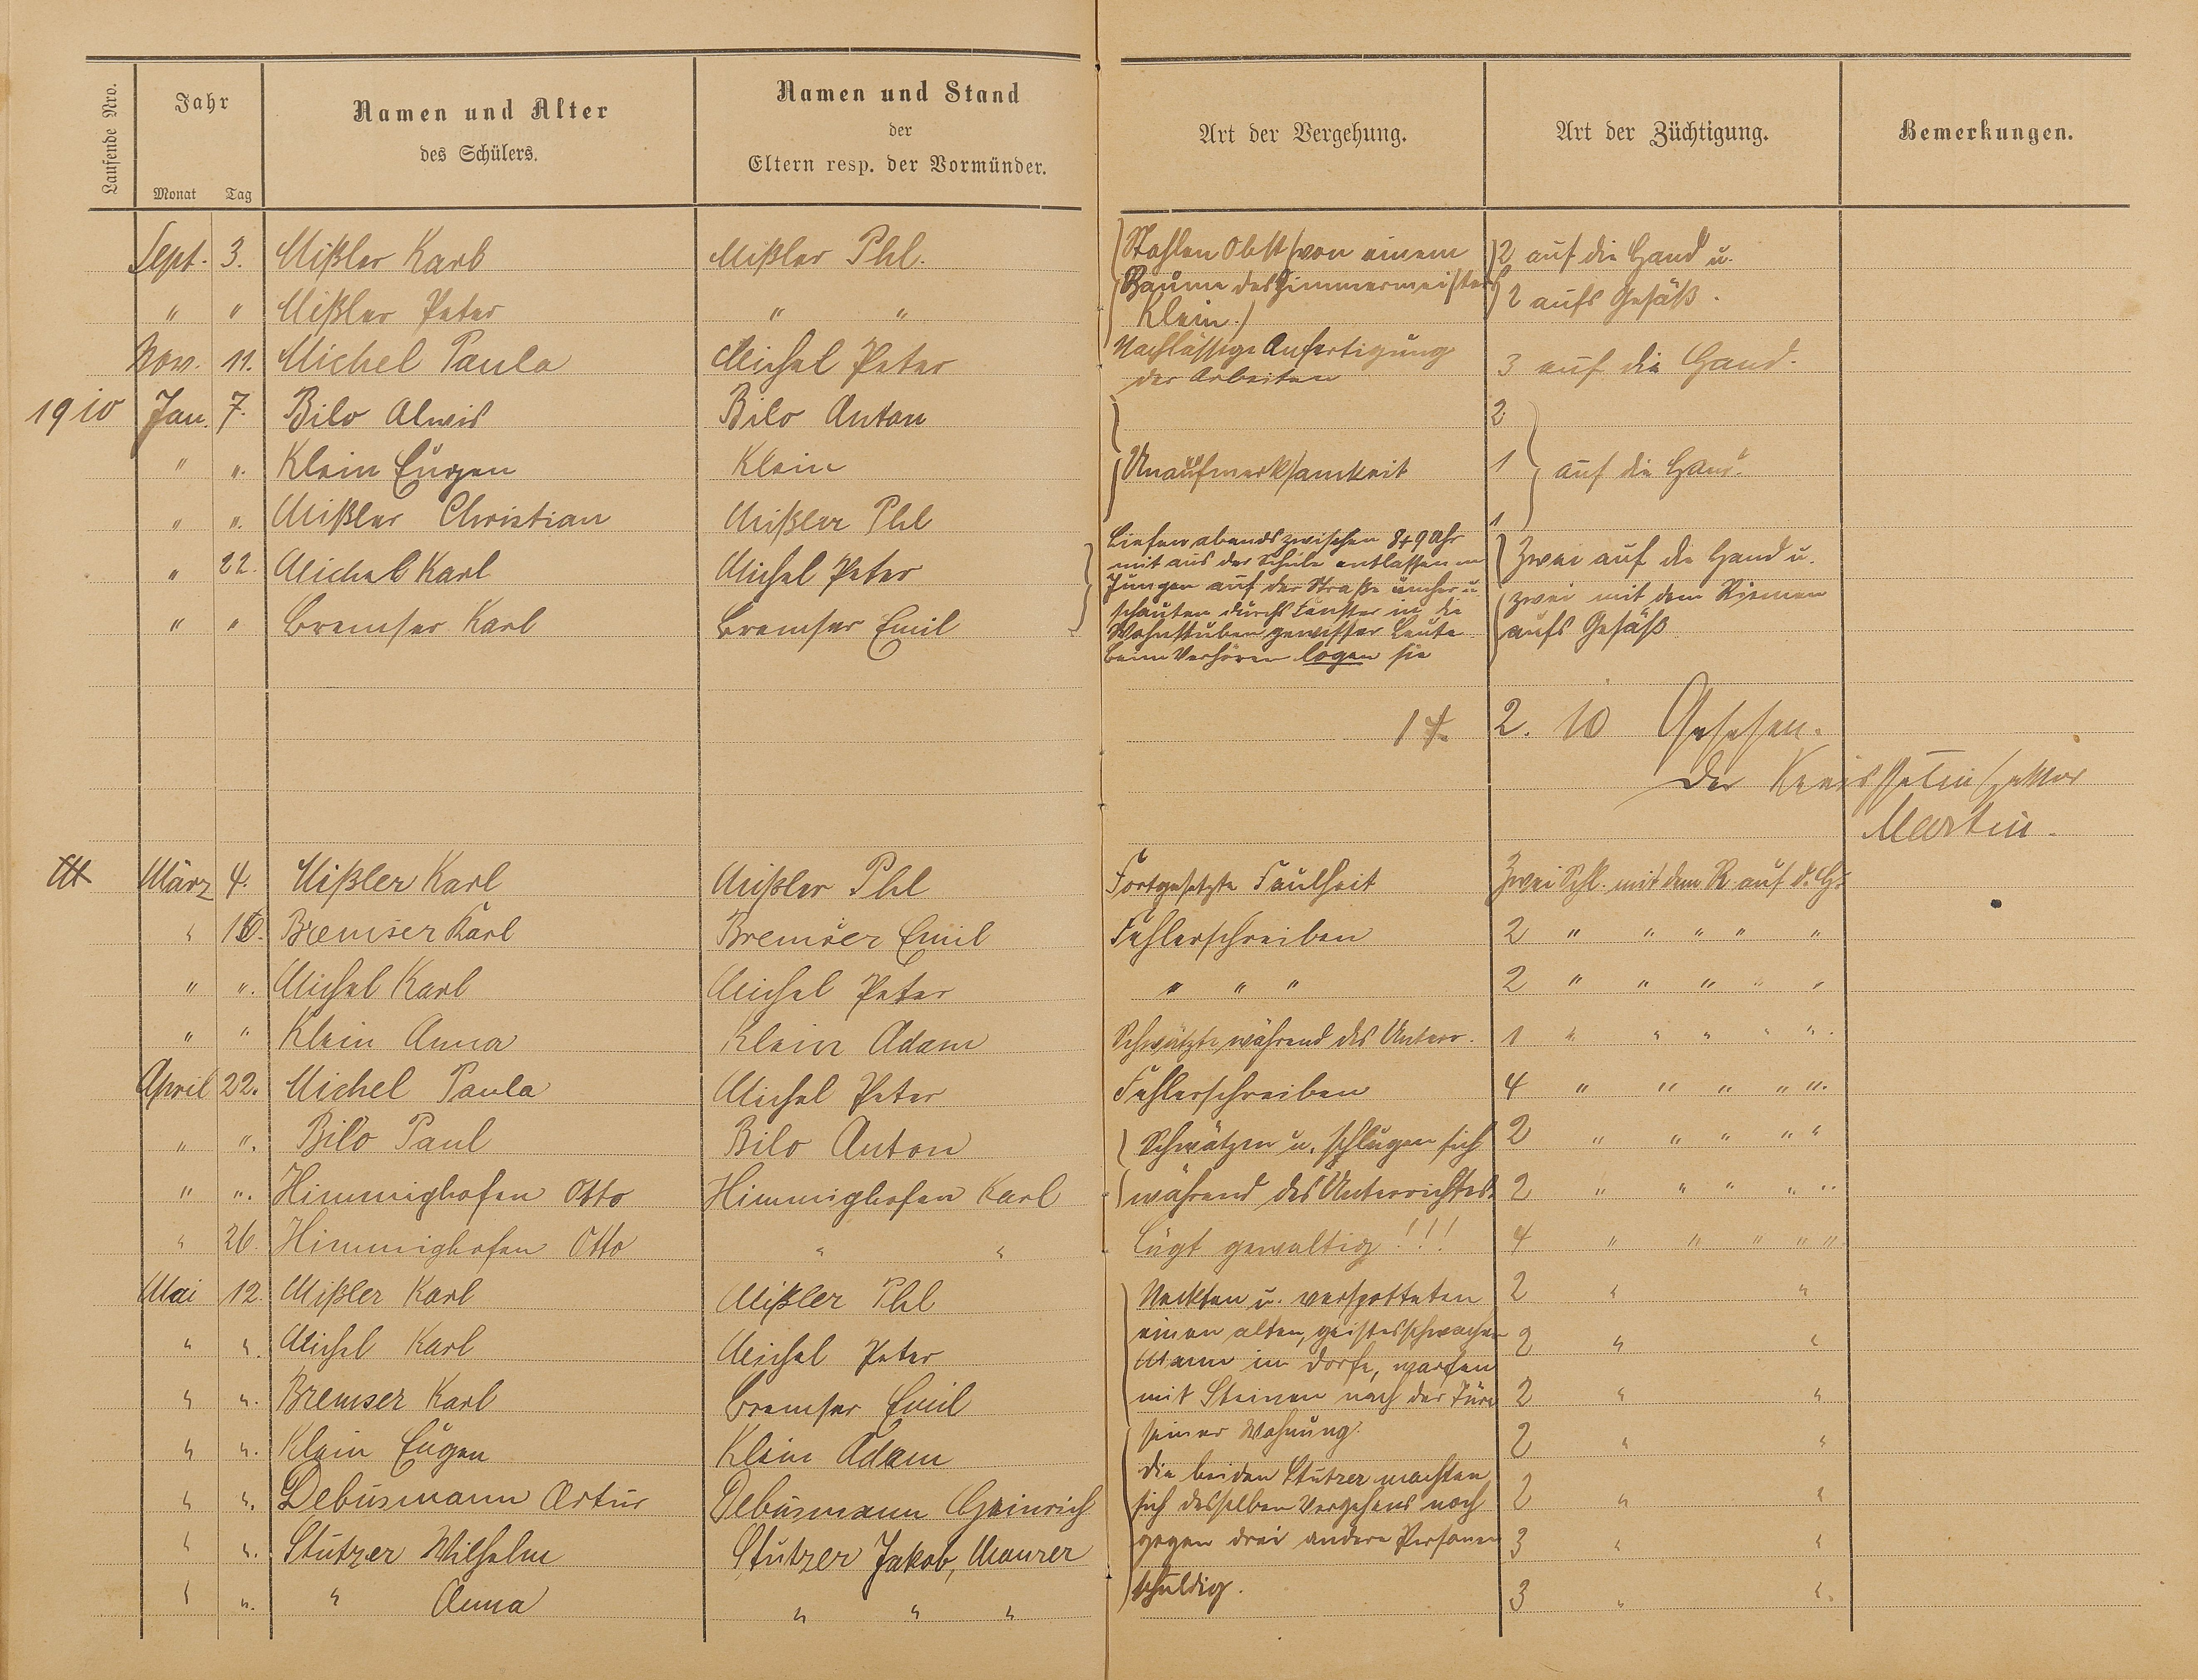 Laufende Nro.
Jahr
Monat Tag
Namen und Alter
des Schülers.
Namen und Stand
der
Eltern resp. der Vormünder.
Art der Vergehung.
Art der Züchtigung.
Bemerkungen.
Sept. 3. Mißler Karl Mißler Phl. Stahlen Obst (von einem 2 auf die Hand u.
" " Mißler Peter " " Baume des Zimmermeisters 2 aufs Gesäß.
Klein.)
Nov. 11. Michel Paula Michel Peter Nachlässige Anfertigung 3 auf die Hand.
der Arbeiten
1910 Jan. 7. Bilo Alwis Bilo Anton 2
" ". Klein Eugen Klein Unaufmerksamkeit 1 auf die Hand.
" ". Mißler Christian Mißler Phl 1
Liefen abends zwischen 8+9 Uhr
" 22. Michel Karl Michel Peter mit aus der Schule entlassenen Zwei auf die Hand u.
Jungen auf der Straße umher u. zwei mit dem Riemen
" " Bremser Karl Bremser Emil schauten durchs Fenster in die aufs Gesäß
Wohnstuben gewisser Leute
beim Verhören logen sie
14. 2. 10 Gesehen.
Der Kreisschulinspektor
Martin.
März 4. Mißler Karl Mißler Phl Fortgesetzte Faulheit Zwei Schl. mit dem R. auf d. Hd.
" 16. Bremser Karl Bremser Emil Fehlerschreiben 2 " " " " "
" ". Michel Karl Michel Peter " " " 2 " " " " "
" " Klein Anna Klein Adam Schwätzte während des Unterr. 1 " " " " ".
April 22. Michel Paula Michel Peter Fehlerschreiben 4 " " " " ".
" ". Bilo Paul Bilo Anton Schwätzen u. schlugen sich 2 " " " " "
" ". Himmighofen Otto Himmighofen Karl während des Unterrichtes. 2 " " " " "
" 26. Himmighofen Otto " " Lügt gewaltig!!! 4 " " " " "
Mai 12. Mißler Karl Mißler Phl Neckten u. verspotteten 2 " "
" ". Michel Karl Michel Peter einen alten, geistesschwachen 2 " "
Mann im Dorfe, warfen
" ". Bremser Karl Bremser Emil mit Steinen nach der Türe 2 " "
" ". Klein Eugen Klein Adam seiner Wohnung. 2 " "
Die beiden Stutzer machten
" ". Debusmann Artur Debusmann Heinrich sich desselben Vergehens noch 2 " "
" ". Stutzer Wilhelm Stutzer Jakob, Maurer gegen drei andere Personen 3 " "
" ". " Anna " " " schuldig. 3 " ".